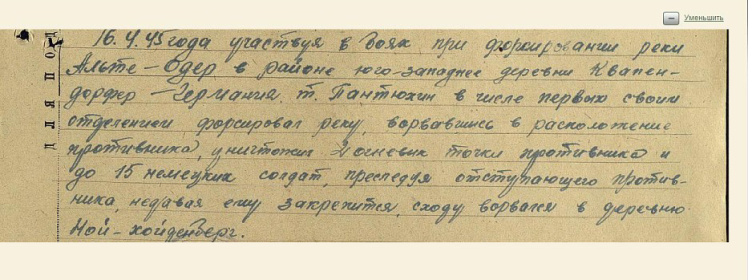 Уменьшить
16.4.45 года участвуя в боях при форсировании реки
Альте-Одер в районе юго-западнее деревни Квапен-
дорфер - Германия. т. Пантюхин в числе первых своим
отделением форсировал реку, ворвавшись в расположение
противника, уничтожил 2 огневик точки противника и
до 15 немецких солдат, преследуя отступающего против-
ника, недавая ему закрепится, сходу ворвался в деревню
Ной-хойденберг.
ДЛЯ ПОД